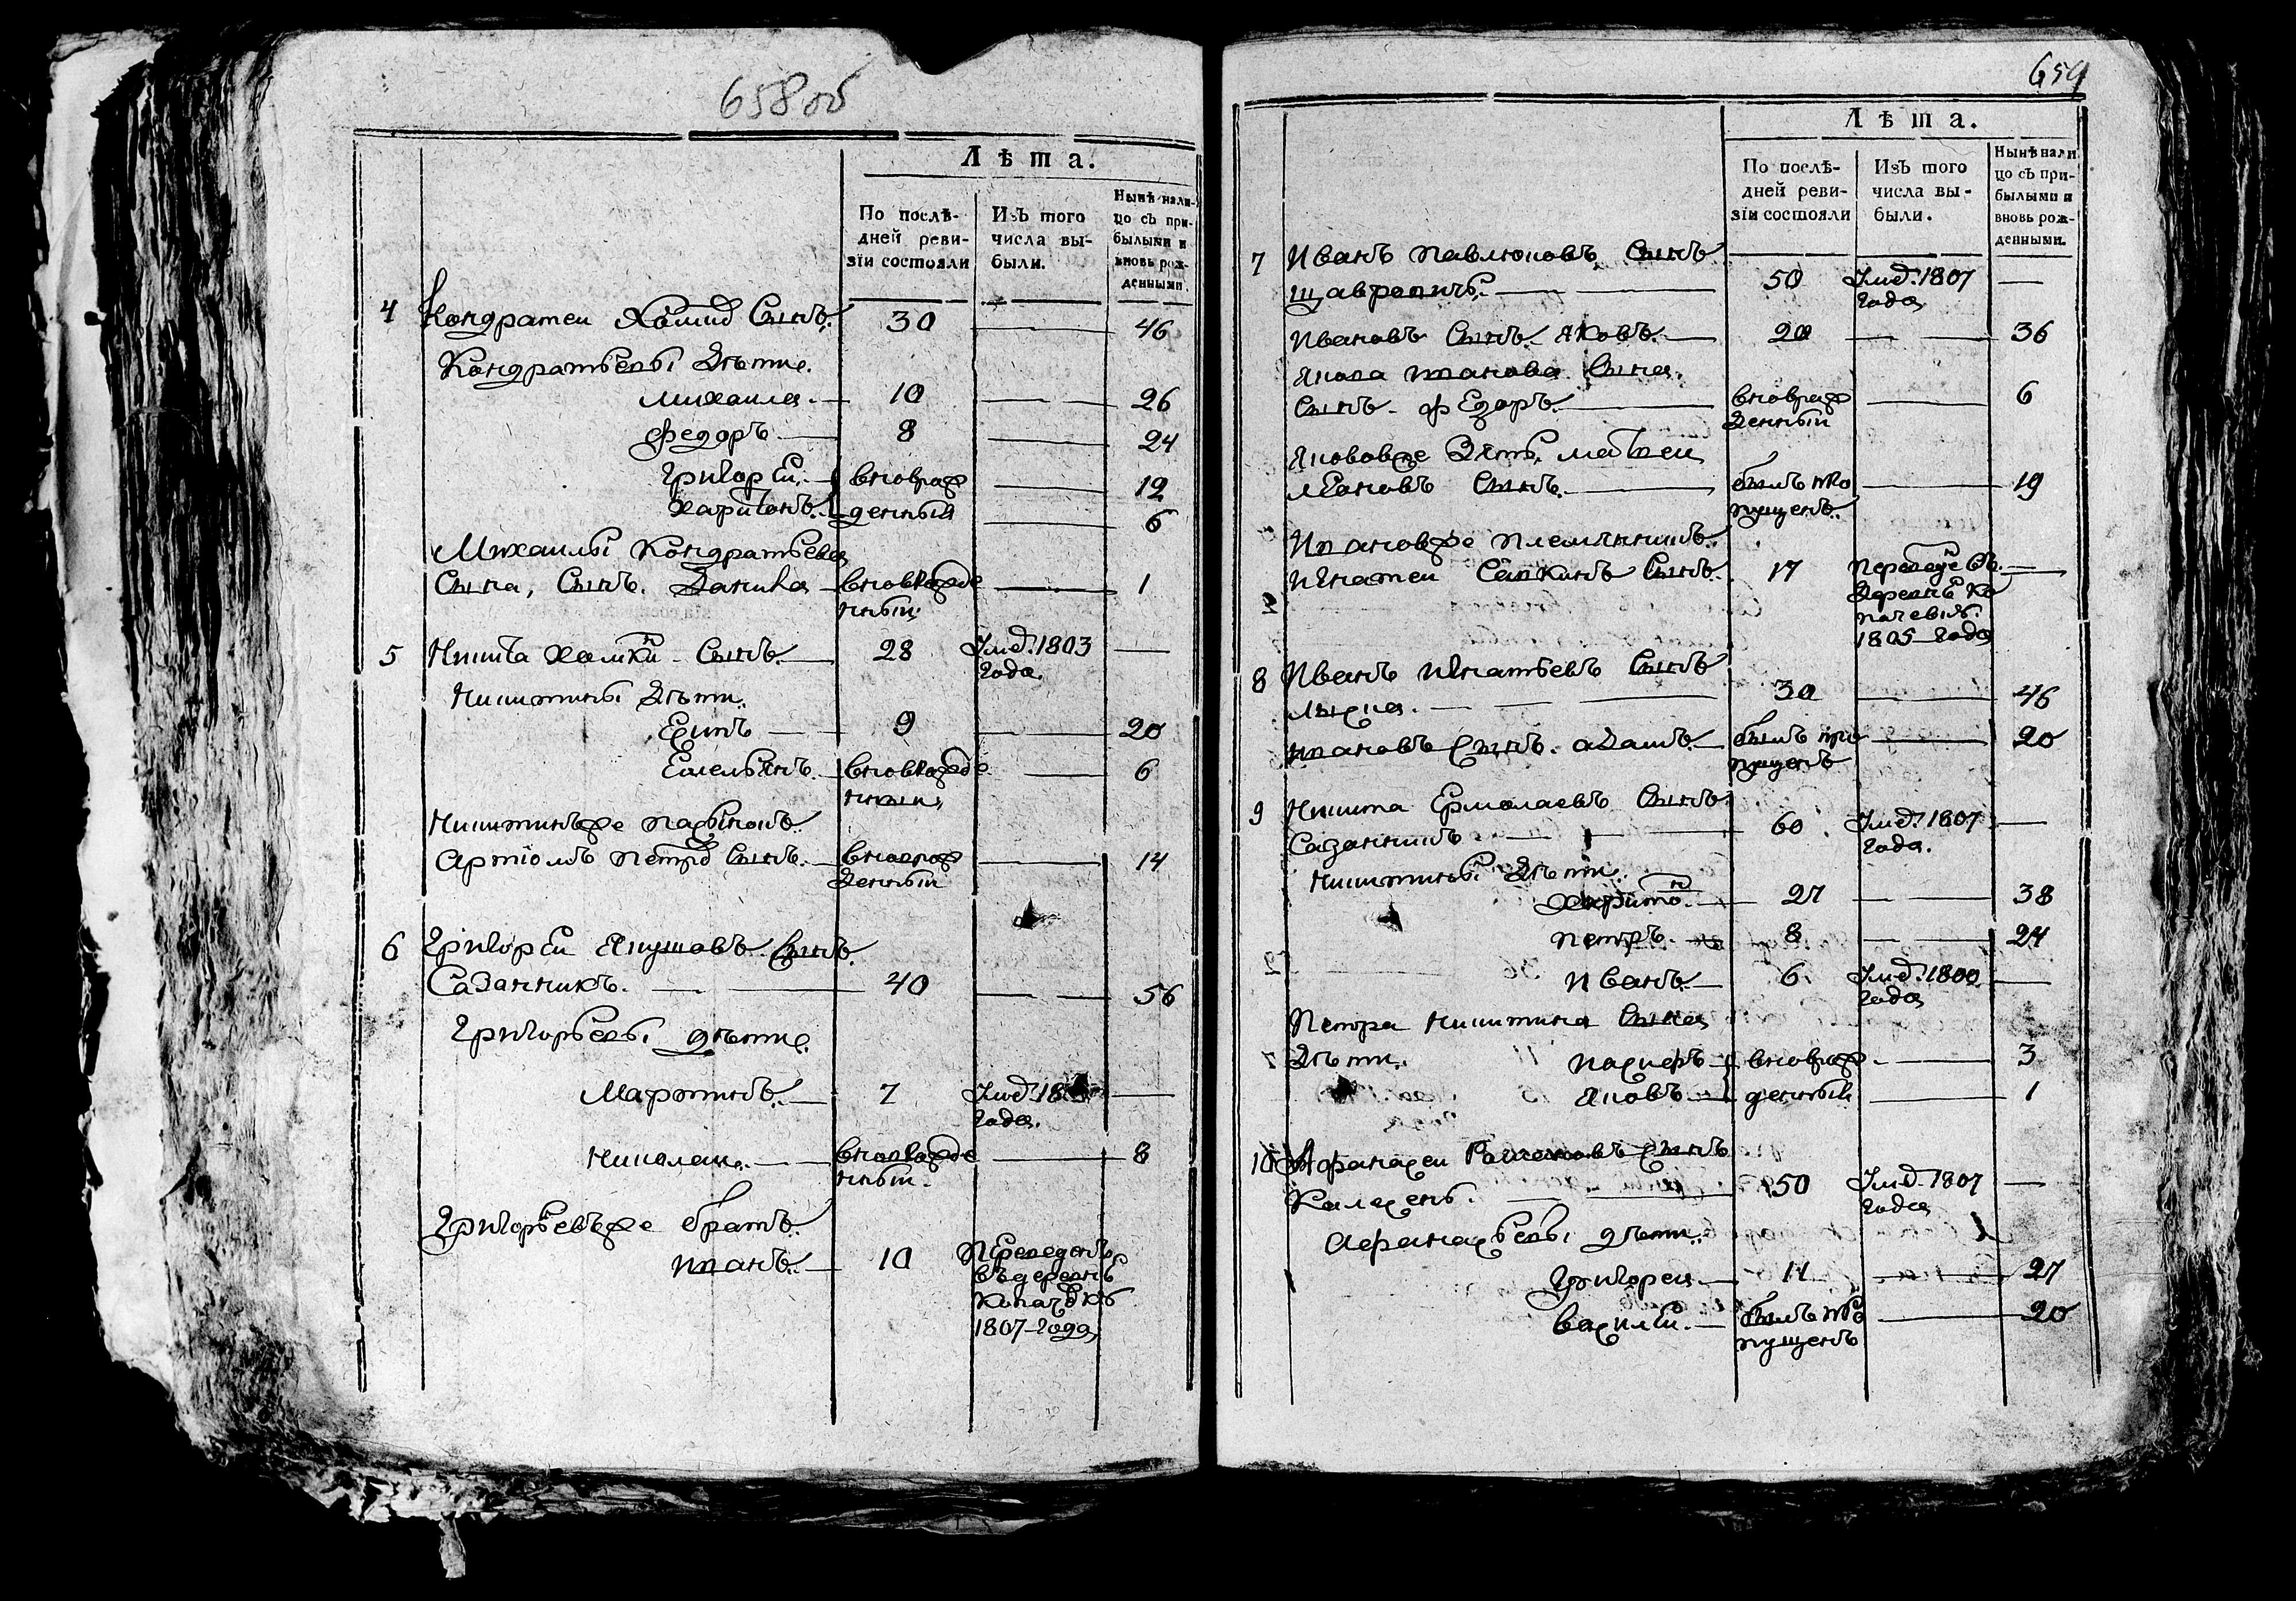 658 об
Лѣта.
По послѣ-
дней реви-
зїи состояли
Изъ того
числа вы-
были.
Нынѣ нали-
цо съ при-
былыми и
вновь рож-
денными.
4 Кондратей Хомид Сынъ. 30 — 46
Кондратьевы Дѣти.
михаила. — 10 — 26
федоръ — 8 — 24
григорей. — вновьрож — 12
харитонъ. денный — 6
Михаилы Кондратьева
Сына, Сынъ. Данила — вноврожде — 1
нный
5 Никита Сынъ. — 28 Умѣ. 1803 —
года.
Никитины Дѣти.
— 9 — 20
Емельянъ. — вноврожде — 6
нный
Никитинъже пасынокъ.
Артіомъ петро Сынъ. — вноврож — 14
денный
6 григорей Сынъ.
Сазанникъ. — 40 — 56
григорьевы дѣти.
Мартинъ. — 7 Умѣ. —
года.
Николаи. — вноврожде — 8
нный.
григорьевъже братъ.
иванъ. — 10 переведенъ
въ деревнѣ
1807 года
659
Лѣта.
По послѣ-
дней реви-
зїи состояли
Изъ того
числа вы-
были.
Нынѣ нали
цо съ при-
былыми и
вновь рож-
денными.
7 Иванъ павлюковъ Сынъ
50 Умѣ. 1807 —
года
ивановъ Сынъ. Яковъ. — 20 — 36
Якова иванова Сына.
Сынъ. федоръ. — вноврож — 6
денный
Яковвже Зять матвеи
Сынъ. — былъ про — 19
пущенъ.
ивановже племянникъ.
игнатеи Сынъ. 17 —
1805 года
8 Иванъ игнатьевъ Сынъ
30 — 46
ивановъ Сынъ. адамъ. — былъ про — 20
пущенъ
9 Никита Ермолаевъ Сынъ.
Сазанникъ. — 60 Умѣ. 1807 —
года.
Никитины Дѣти.
Харитон. — 27 — 38
петръ. — 8 — 24
иванъ. — 6 Умѣ. 1800 —
года
Петра никитина Сына
Дѣти. — вноврож — 3
Яковъ — денный — 1
10 Афанасеи Сынъ
50 Умѣ. 1807 —
года
Афанасьевы дѣти.
григореи — 11 — 27
василии. — былъ про — 20
пущенъ